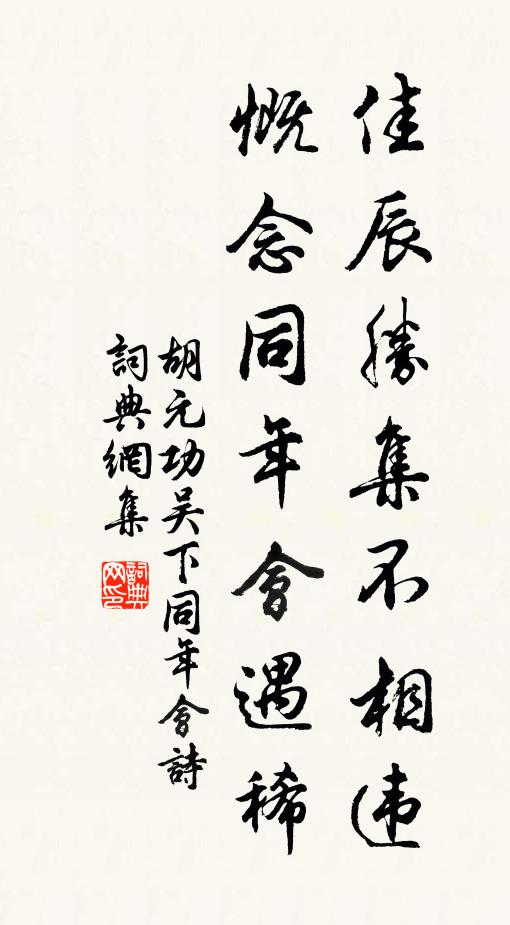 佳辰勝集不相违
慨念同年會遇稀
胡元功吴下同年會詩
詞典網集
詞典网印